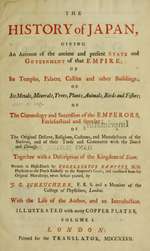 THE
HISTORY of JAPAN,
GIVING
An Account of the ancient and present STATE and
GOVERNMENT of that EMPIRE;
OF
Its Temples, Palaces, Castles and other Buildings;
OF
Its Metals, Minerals, Trees, Plants, Animals, Birds and Fishes;
OF
The Chronology and Succession of the EMPERORS,
Ecclesiastical and Secular;
OF
The Original Descent, Religions, Customs, and Manufactures of the
Natives, and of their Trade and Commerce with the Dutch
and Chinese.
Together with a Description of the Kingdom of Siam.
Written in High-Dutch by ENGELBERTUS KÆMPFER, M.D.
Physician to the Dutch Embassy to the Emperor's Court; and translated from his
Original Manuscript, never before printed, by
J. G. SCHEUCHZER, F.R.S. and a Member of the
College of Physicians, London.
With the Life of the Author, and an Introduction.
ILLUSTRATED with many COPPER PLATES.
VOLUME I.
LONDON:
Printed for the TRANSLATOR, MDCCXXVII.